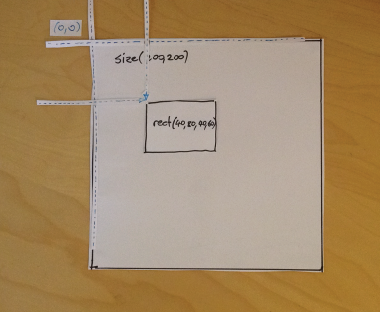 (0,0)
size(200,200)
rect(40,80,90,60)